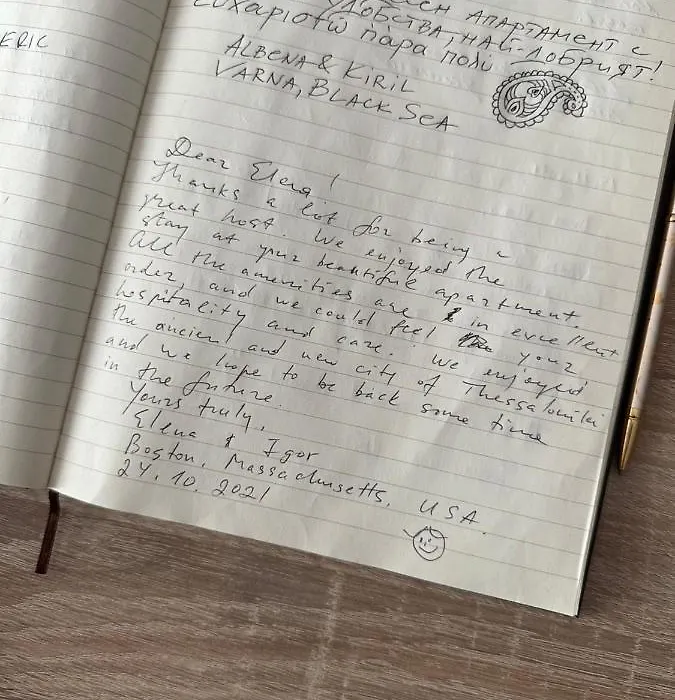 АПАРТАМЕНТ С
УДОБСТВА, НАЙ-ДОБРИЯТ!
ευχαριστώ πάρα πολύ
ERIC
ALBENA & KIRIL
VARNA, BLACK SEA
Dear Elena!
Thanks a lot for being a
great host. We enjoyed the
stay at your beautiful apartment.
All the amenities are in excellent
order, and we could feel your
hospitality and care. We enjoyed
the ancient and new city of Thessaloniki
and we hope to be back some time
in the future.
Yours truly,
Elena & Igor
Boston, Massachusetts, USA.
24.10.2021